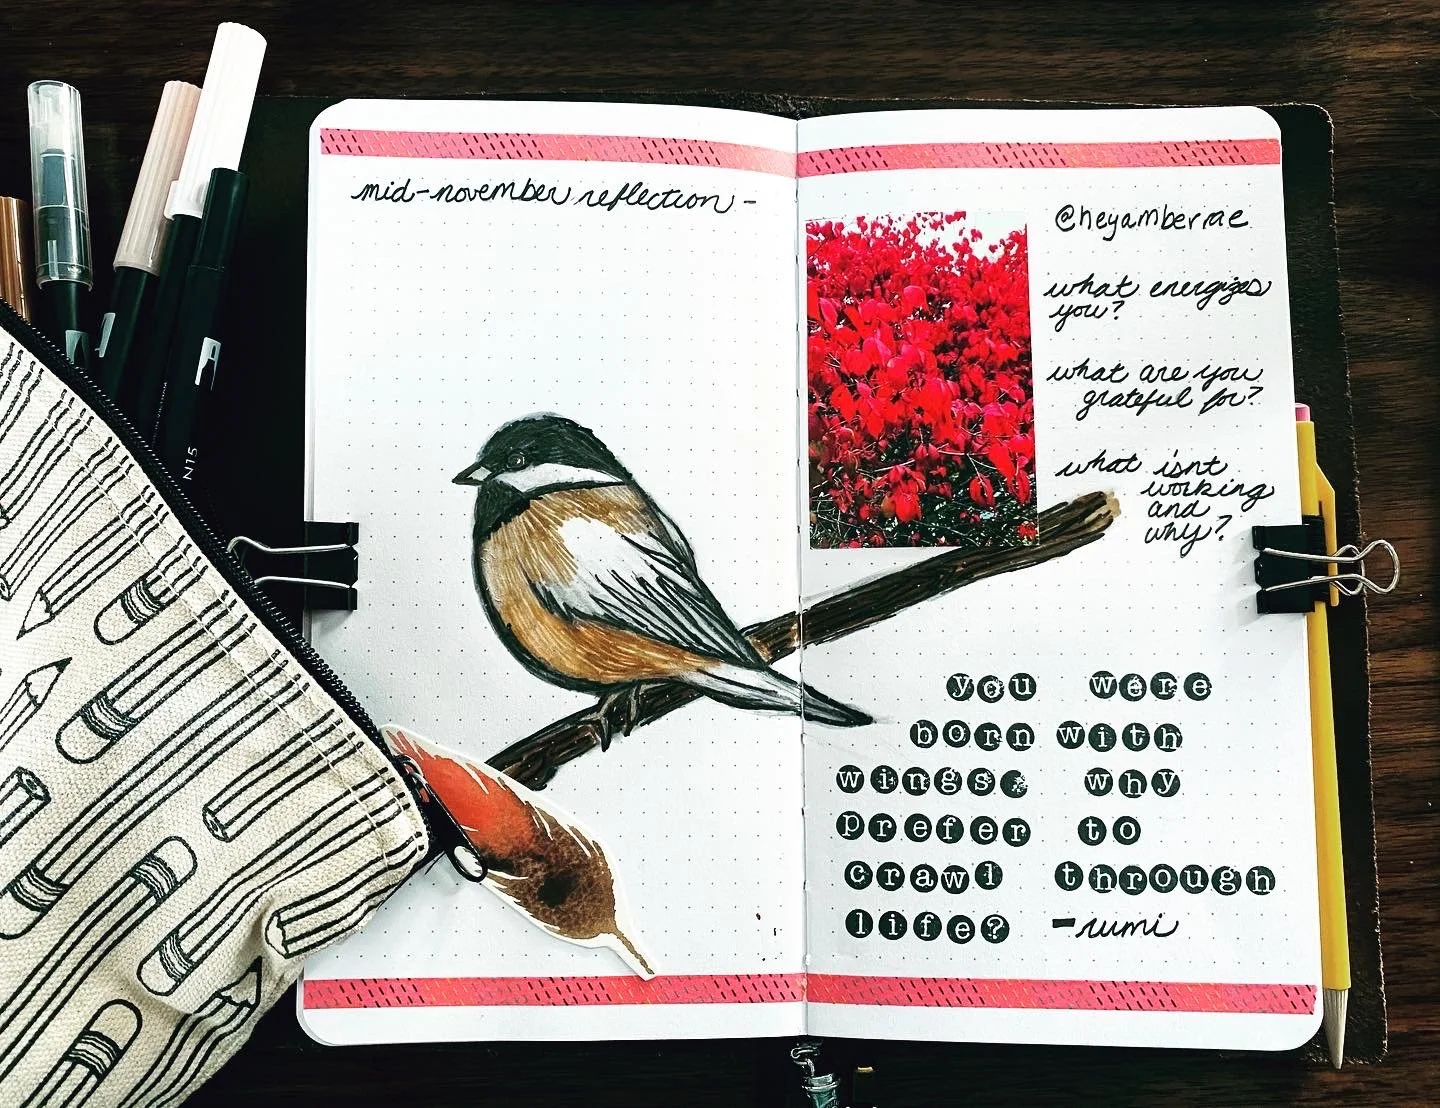 mid-november reflection -
@heyamberrae
what energizes
you?
what are you
grateful for?
what isnt
working
and
why?
you were
born with
wings. why
prefer to
crawl through
life? -rumi
N15